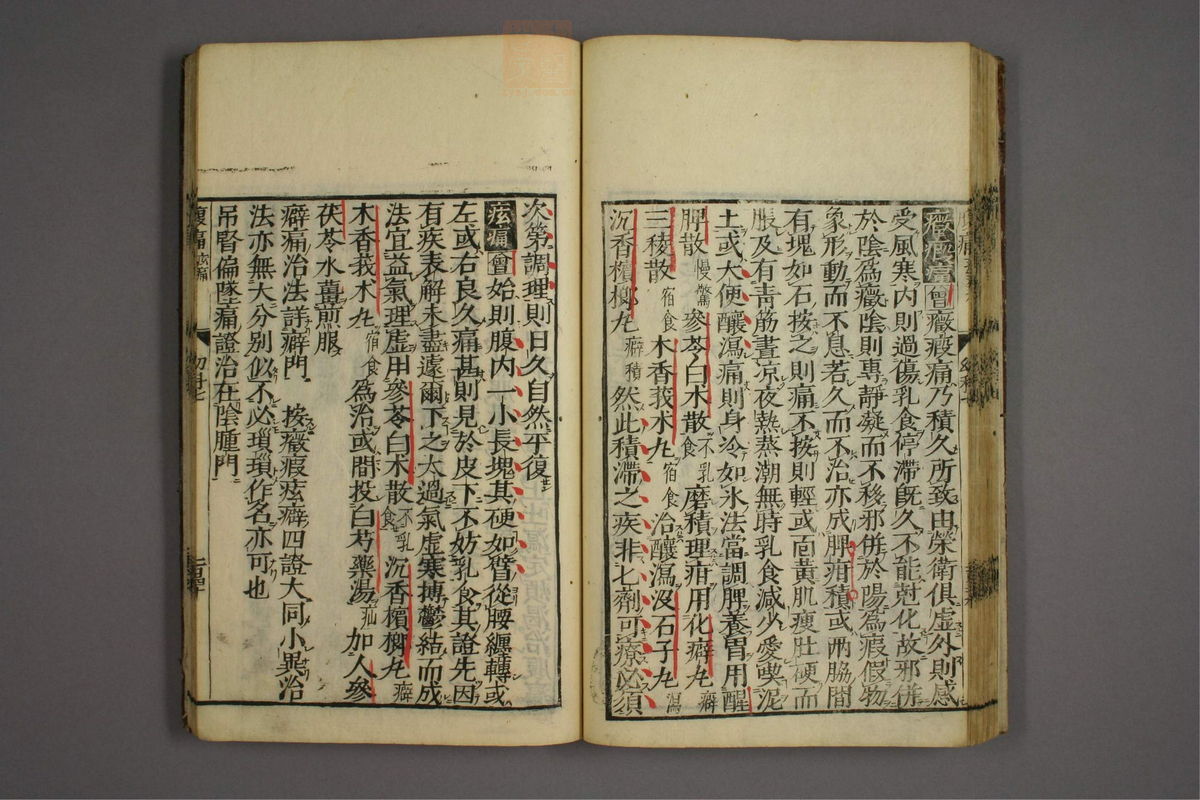 癥瘕痛 曾 癥瘕痛乃積久所致由榮衛俱虛外則感
受風寒内則過傷乳食停滯旣久不能尅化故邪併
於陰爲癥陰則專靜凝而不移邪併於陽爲瘕假物
象形動而不息若久而不治亦成脾疳積或兩脇間
有塊如石按之則痛不按則輕或面黃肌瘦肚硬而
脹及有青筋晝凉夜熱蒸潮無時乳食減少愛喫泥
土或大便釀瀉痛則身冷如氷法當調脾養胃用醒
脾散慢驚參苓白术散不乳食磨積理疳用化癖丸癖
三稜散宿食木香莪术丸宿食治釀瀉沒石子丸瀉
沉香檳榔丸癖積然此積滯之疾非七劑可療必須
次第調理則日久自然平復
痃痛 曾 始則腹内一小長塊其硬如臂從腰纏轉或
左或右良久痛甚則見於皮下不妨乳食其證先因
有疾表解未盡遽爾下之太過氣虛寒搏鬱結而成
法宜益氣理虛用參苓白术散不乳食沉香檳榔丸癖
木香莪术丸宿食爲治或間投白芍藥湯疝加人參
茯苓水薑煎服
癖痛治法詳癖門 按癥瘕痃癖四證大同小異治
法亦無大分別似不必瑣瑣作名亦可也
吊腎偏墜痛證治在陰腫門
腹痛 痃痛